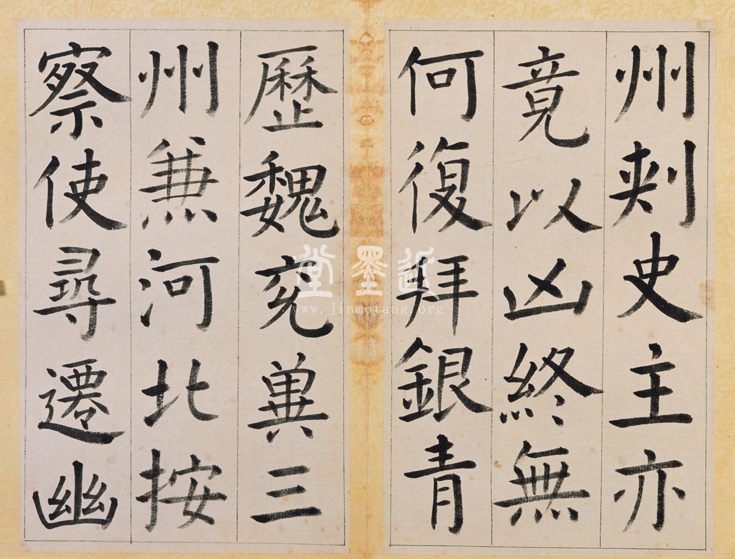 州刾史主亦
竟以凶終無
何復拜銀青
歷魏兖冀三
州兼河北按
察使尋遷幽
近墨堂
www.jinmotang.org